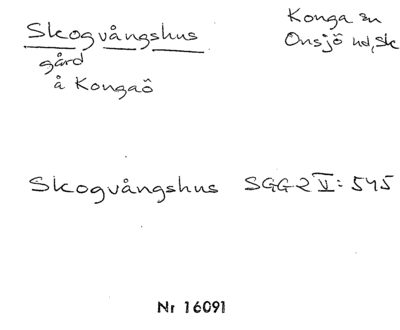 Skogvångshus
gård
å Kongaö
Konga sn
Onsjö hd, Sk
Skogvångshus SGG 2 V: 545
Nr 16091